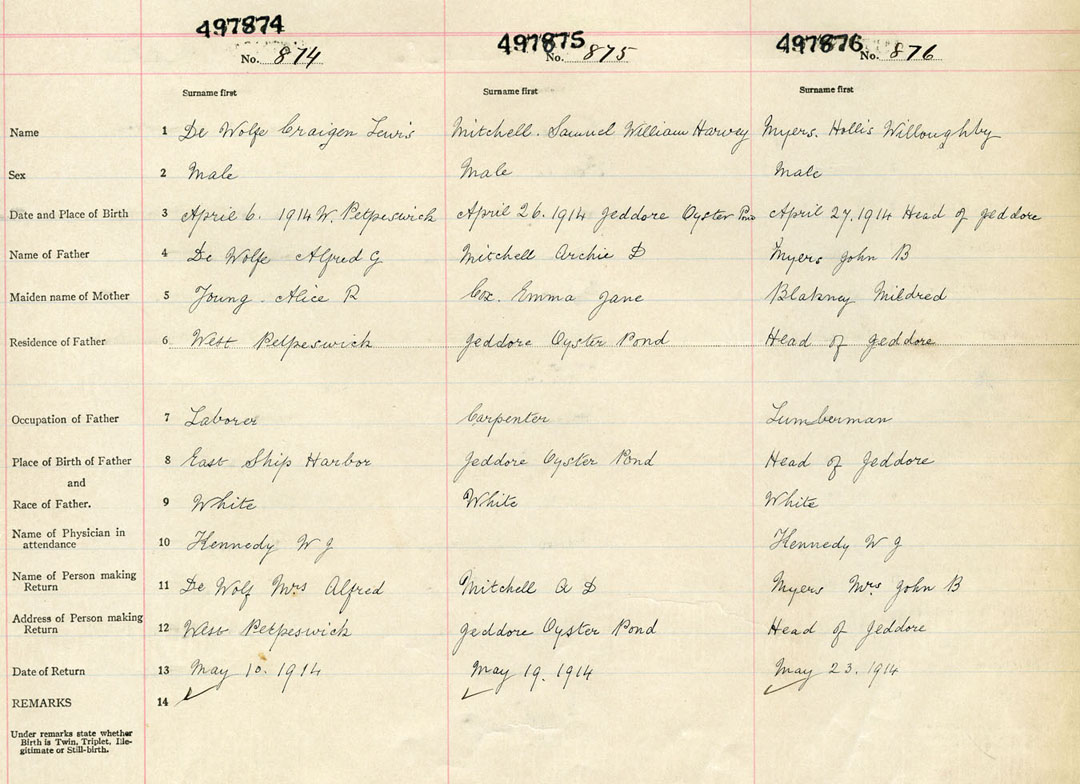 497874 497875 497876
No. 874 No. 875 No. 876
Surname first Surname first Surname first
Name 1 De Wolfe Craigen Lewis Mitchell. Samuel William Harvey Myers. Hollis Willoughby
Sex 2 Male Male Male
Date and Place of Birth 3 April 6. 1914 W. Petpeswick April 26. 1914 Jeddore Oyster Pond April 27. 1914 Head of Jeddore
Name of Father 4 De Wolfe Alfred G Mitchell Archie D Myers John B
Maiden name of Mother 5 Young. Alice R Cox. Emma Jane Blakney Mildred
Residence of Father 6 West Petpeswick Jeddore Oyster Pond Head of Jeddore
Occupation of Father 7 Laborer Carpenter Lumberman
Place of Birth of Father 8 East Ship Harbor Jeddore Oyster Pond Head of Jeddore
and
Race of Father. 9 White White White
Name of Physician in
attendance 10 Kennedy W J Kennedy W J
Name of Person making
Return 11 De Wolf Mrs Alfred Mitchell A D Myers Mrs John B
Address of Person making
Return 12 West Petpeswick Jeddore Oyster Pond Head of Jeddore
Date of Return 13 May 10. 1914 May 19. 1914 May 23. 1914
REMARKS 14
Under remarks state whether
Birth is Twin, Triplet, Ille-
gitimate or Still-birth.